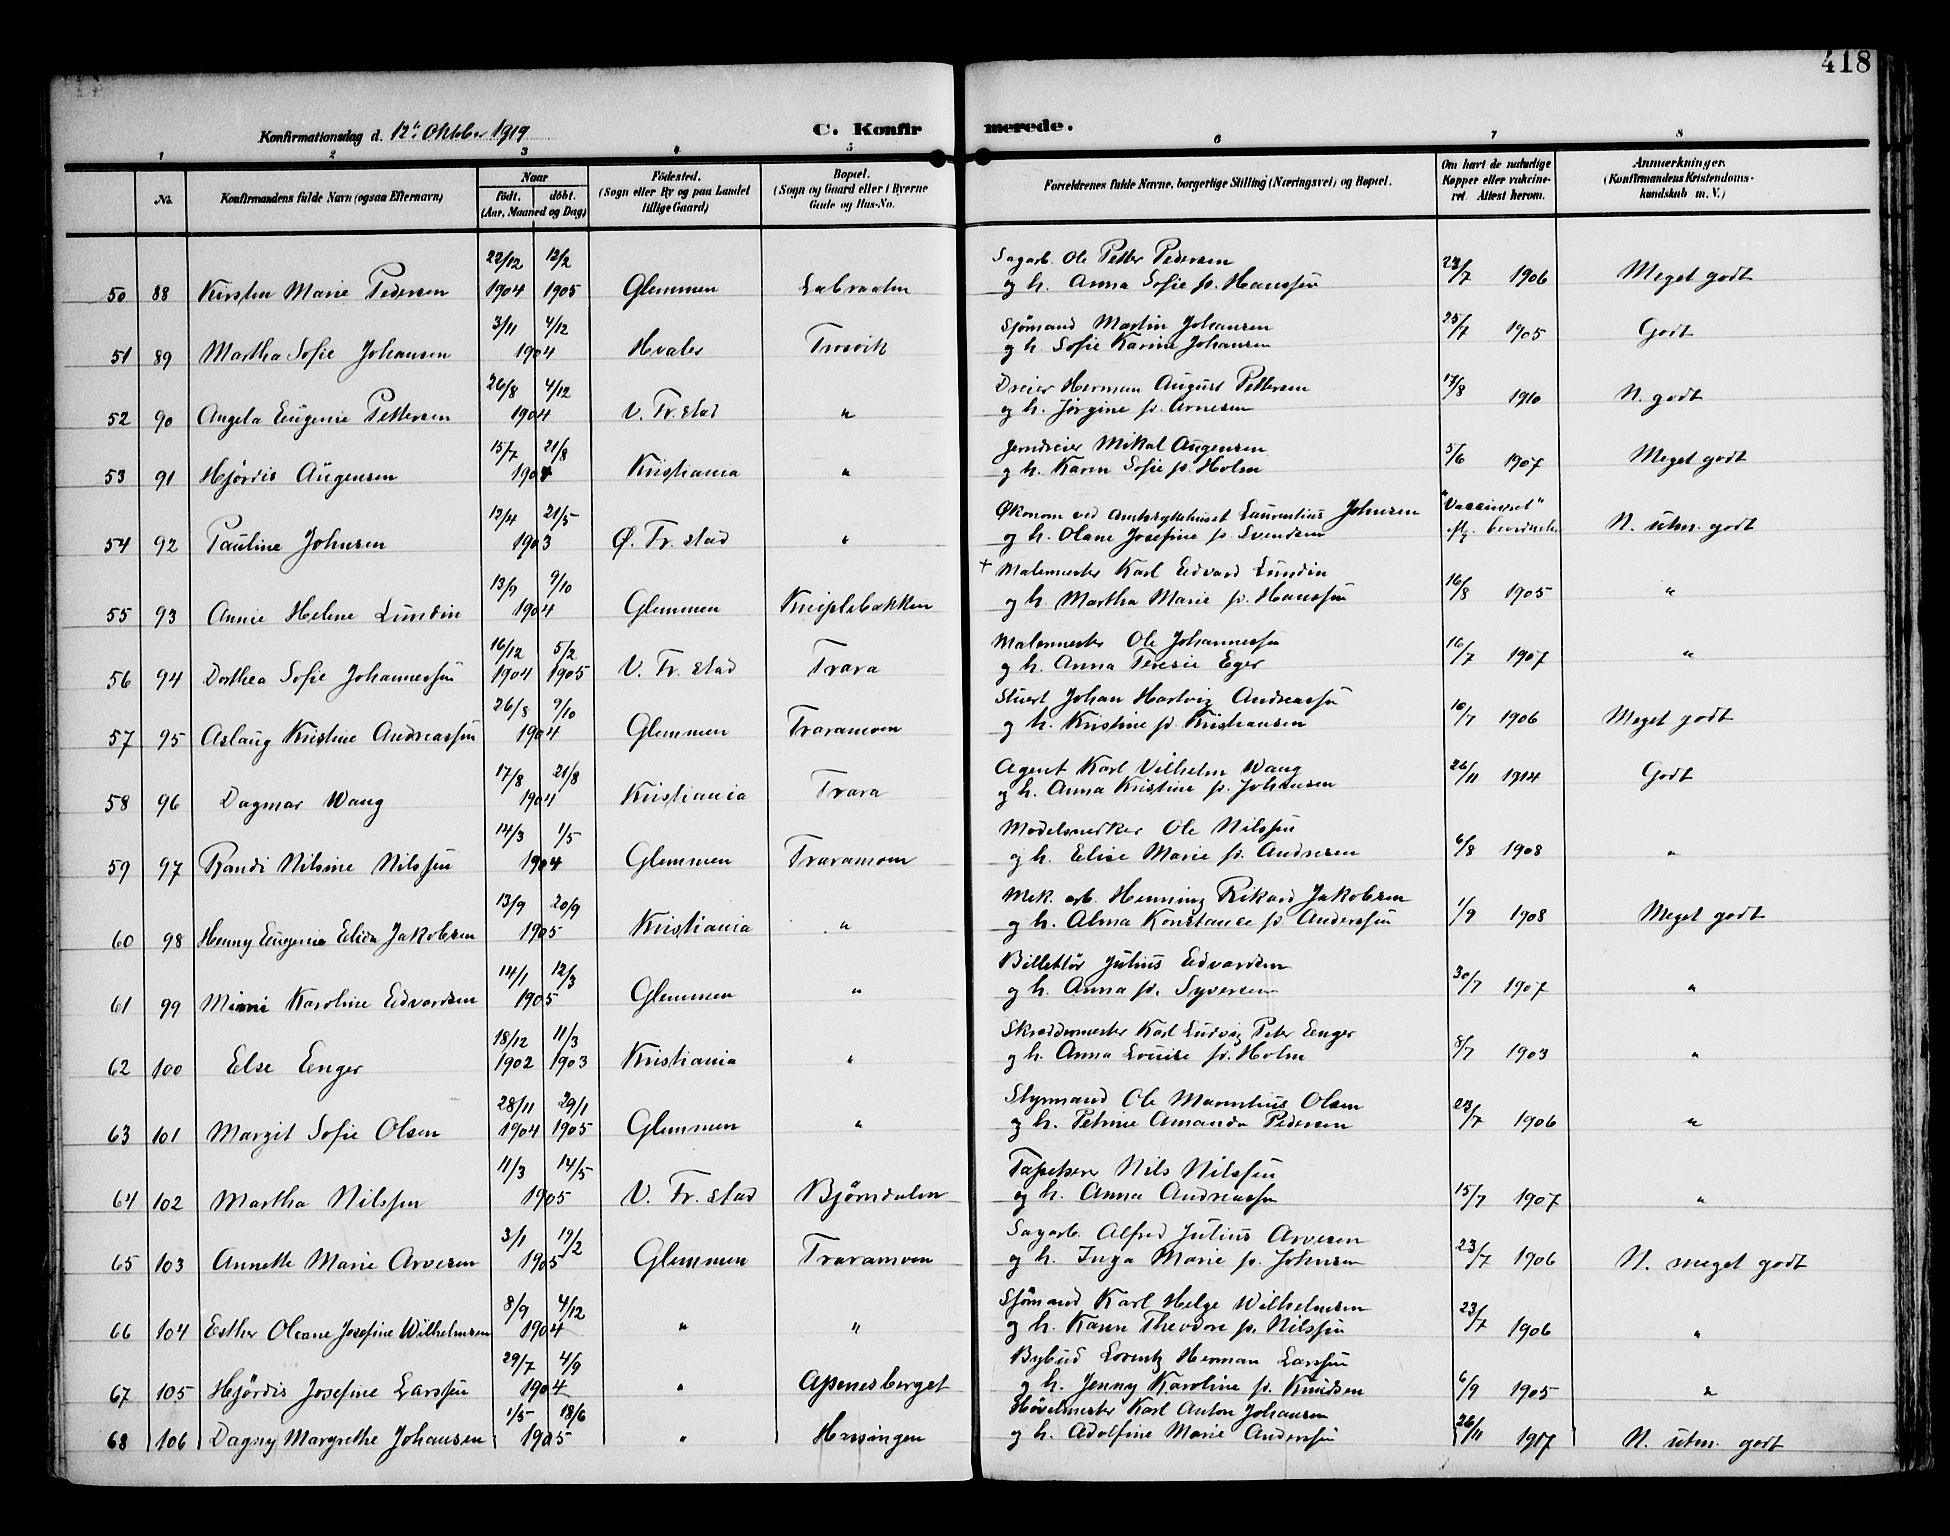 418
Konfirmationsdag d. 12te Oktober 1919 C. Konfirmerede.
1 2 3 4 5 6 7 8
No. Konfirmandens fulde Navn (ogsaa Efternavn) Naar født. døbt. (Aar, Maaned og Dag) Fødested. (Sogn eller By og paa Landet tillige Gaard) Bopæl. (Sogn og Gaard eller i Byerne Gade og Hus-No. Forældrenes fulde Navne, borgerlige Stilling (Næringsvei) og Bopæl. Om havt de naturlige Kopper eller vakcineret. Attest herom. Anmærkninger. (Konfirmandens Kristendomskundskab m. V.)
22/12 12/2 Sagarb. Ole Petter Pedersen 23/7
50 88 Kirsten Marie Pedersen 1904 1905 Glemmen Labraaten og h. Anna Sofie f. Hanssen 1906 Meget godt
3/11 4/12 Sjømand Martin Johansen 25/7
51 89 Martha Sofie Johansen 1904 Hvaler Trosvik og h. Sofie Karine Johansen 1905 Godt
26/8 4/12 Dreier Herman August Pettersen 17/8
52 90 Angela Eugenie Pettersen 1904 V. Fr.stad " og h. Jørgine f. Arnesen 1910 N. godt
15/7 21/8 Jerndreier Mikal Augensen 5/6
53 91 Hjørdis Augensen 1904 Kristiania " og h. Karen Sofie f. Holm 1907 Meget godt
12/4 21/5 Økonom ved Amtssykehuset Laurentius Johnsen "Vaccineret"
54 92 Pauline Johnsen 1903 Ø. Fr.stad " og h. Olane Josefine f. Svendsen N. utm. godt
13/9 9/10 + Malermester Karl Edvard Lundin 16/8
55 93 Annie Helene Lundin 1904 Glemmen Kniplebakken og h. Martha Marie f. Hanssen 1905 "
16/12 5/2 Malermester Ole Johannessen 16/7
56 94 Dorthea Sofie Johannessen 1904 1905 V. Fr.stad Trara og h. Anna Teresie Eger 1907 "
26/8 9/10 Stuert Johan Hartvig Andreassen 10/7
57 95 Aslaug Kristine Andreassen 1904 Glemmen Traramoen og h. Kristine f. Kristiansen 1906 Meget godt
17/8 21/8 Agent Karl Vilhelm Wang 26/11
58 96 Dagmar Wang 1904 Kristiania Trara og h. Anna Kristine f. Johansen 1914 Godt
14/3 1/5 Modelsnedker Ole Nilssen 6/8
59 97 Randi Nilsine Nilssen 1904 Glemmen Traramoen og h. Elise Marie f. Andresen 1908 "
13/9 20/9 Mek. arb. Henning Rikard Jakobsen 1/9
60 98 Henny Eugenie Elida Jakobsen 1905 Kristiania " og h. Alma Konstance f. Anderssen 1908 Meget godt
14/1 12/3 Billettør Julius Edvardsen 30/7
61 99 Mimi Karoline Edvardsen 1905 Glemmen " og h. Anna f. Syversen 1907 "
18/12 11/3 Skreddermester Karl Ludvig Peter Enger 8/7
62 100 Else Enger 1902 1903 Kristiania " og h. Anna Louise f. Holm 1903 "
28/11 29/1 Styrmand Ole Marentius Olsen 23/7
63 101 Margit Sofie Olsen 1904 1905 Glemmen " og h. Petrine Amanda Pedersen 1906 "
11/3 14/5 Tapetserer Nils Nilssen
64 102 Martha Nilssen 1905 V. Fr.stad Bjørndalen og h. Anna Andreassen 15/7 1907 "
3/1 19/2 Sagarb. Alfred Julius Arvesen 23/7
65 103 Annette Marie Arvesen 1905 Glemmen Traramoen og h. Inga Marie f. Johnsen 1906 N. meget godt
8/9 4/12 Sjømand Karl Helge Wilhelmsen 23/7
66 104 Esther Oleane Josefine Wilhelmsen 1904 " " og h. Karen Theodore f. Nilssen 1906 "
29/7 4/9 Bybud Lorentz Herman Larssen
67 105 Hjørdis Josefine Larssen 1904 " Apenesberget og h. Jenny Karoline f. Knudsen 6/9 1905 "
1/5 18/6 Høvelmester Karl Anton Johansen 26/11
68 106 Dagny Margrethe Johansen 1905 " Hassingen og h. Adolfine Marie Anderssen 1917 N. utm. godt